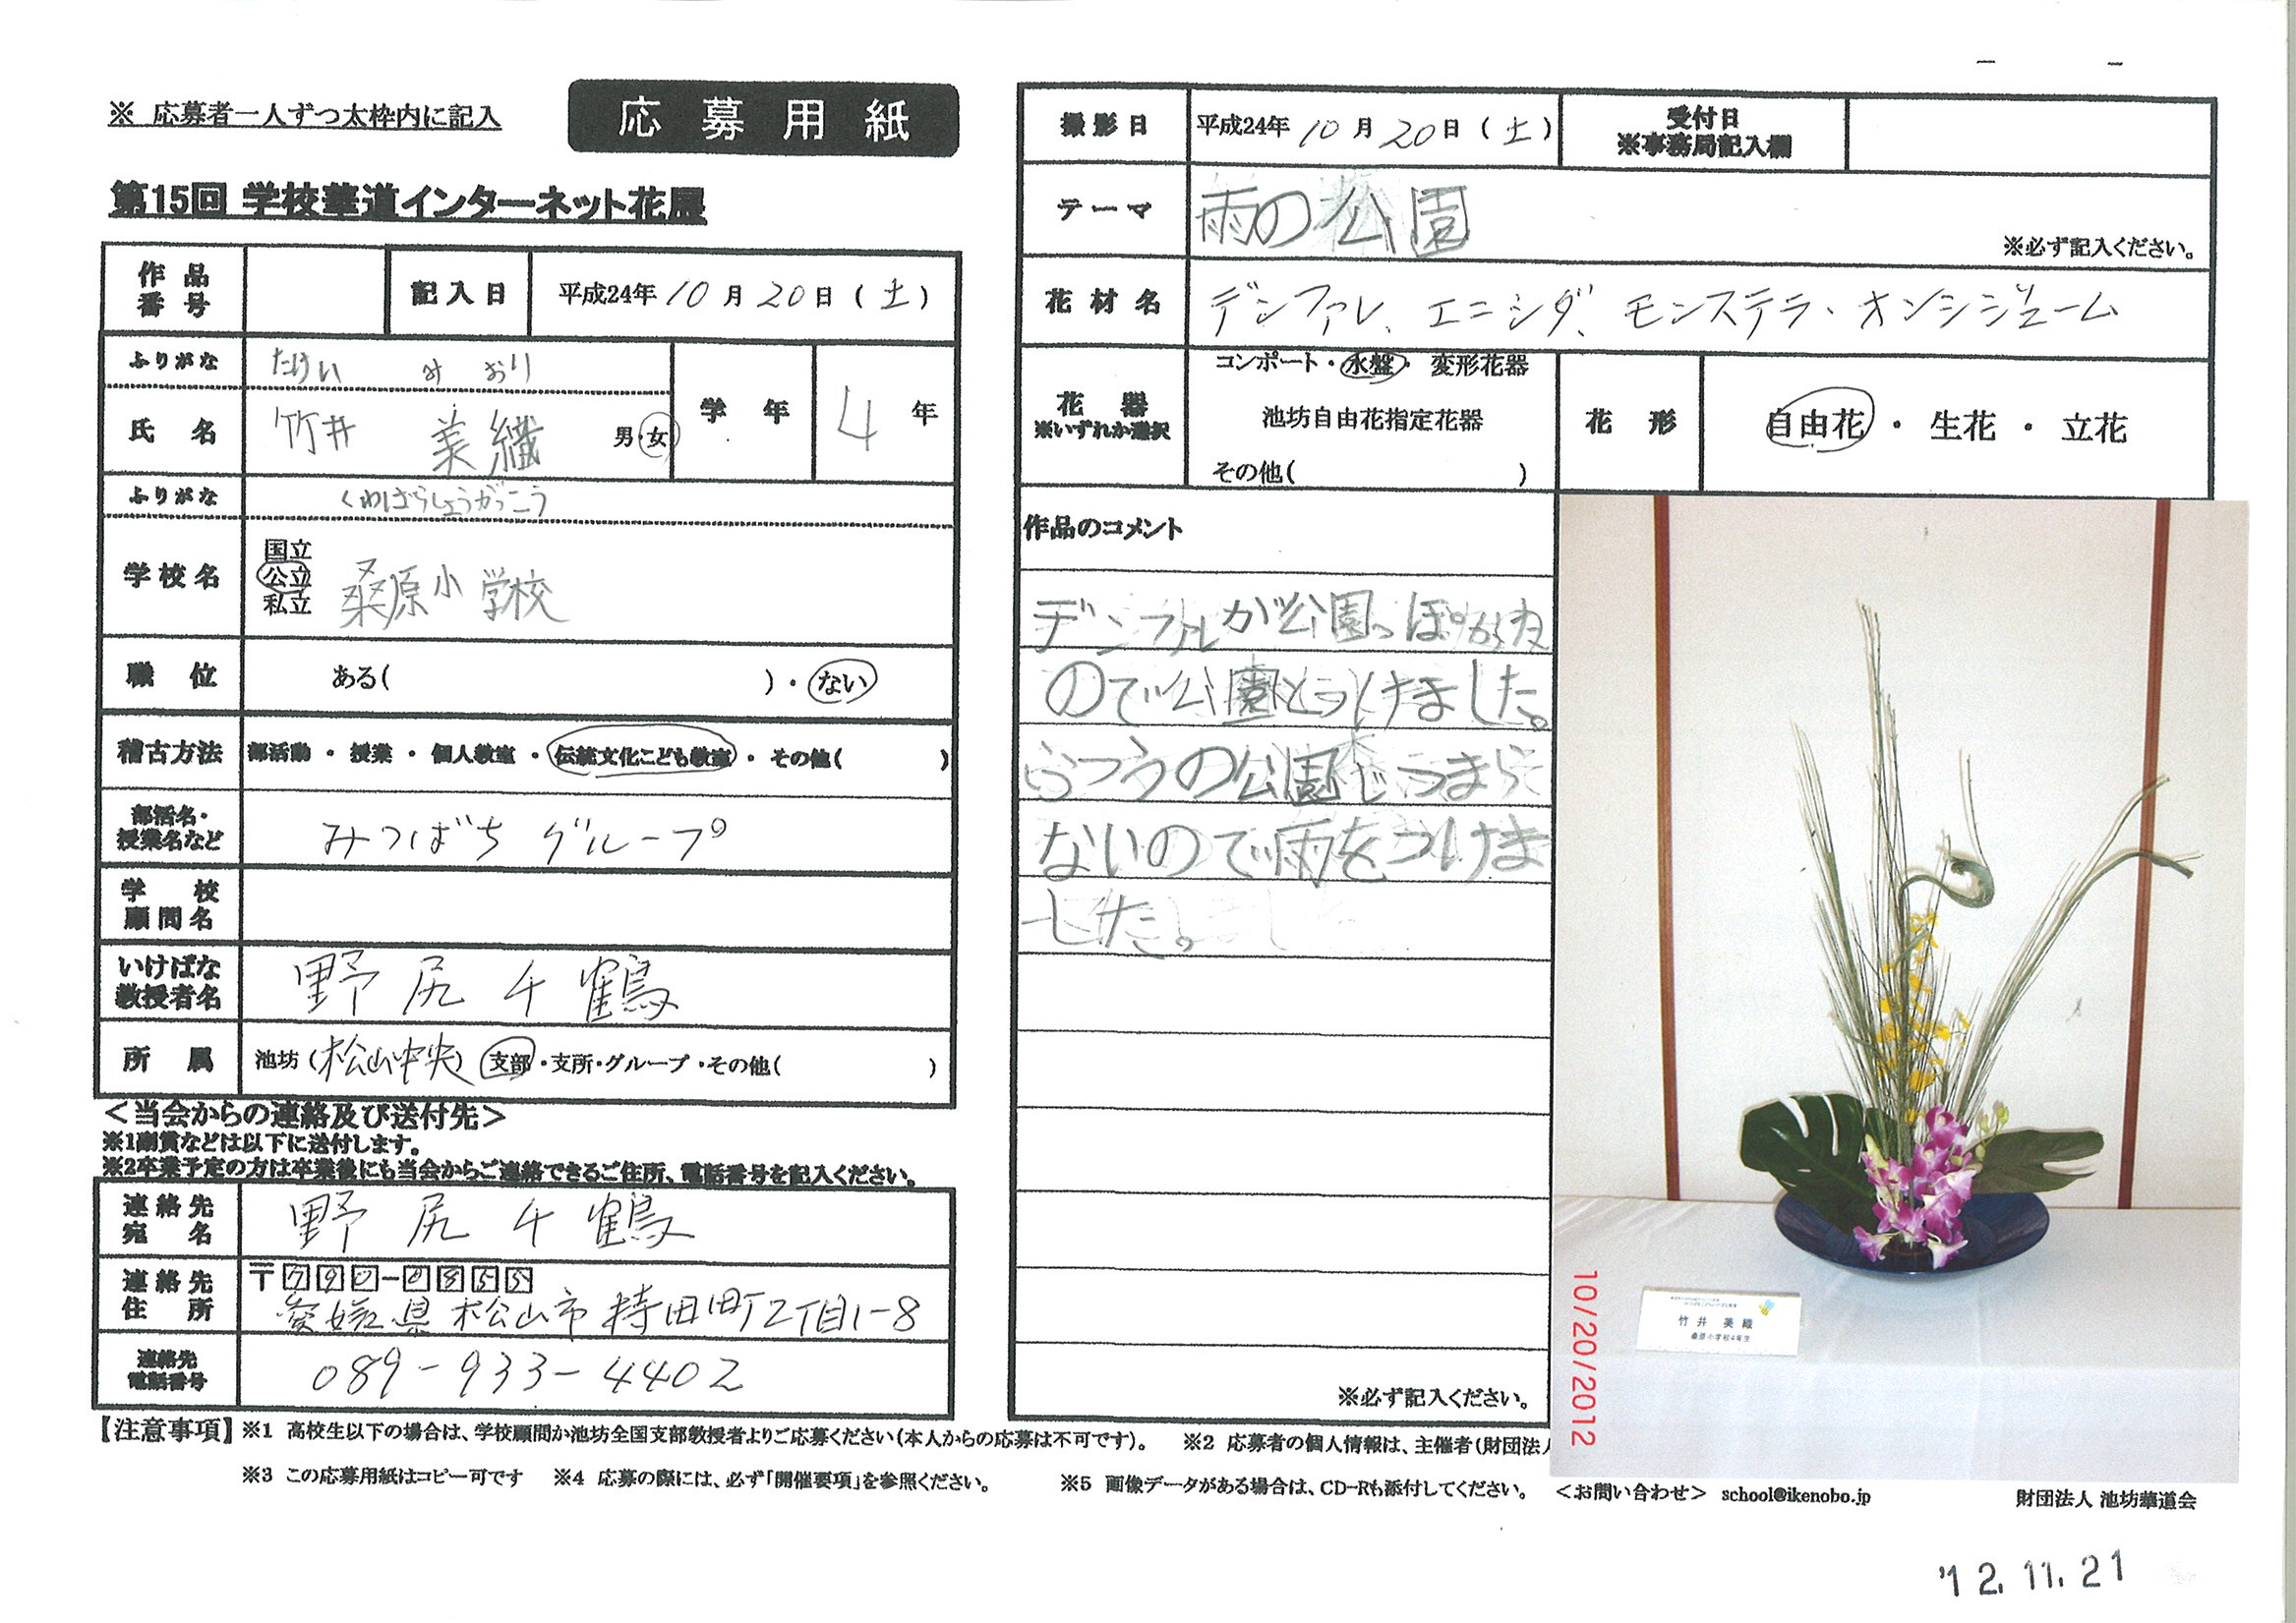 ※ 応募者一人ずつ太枠内に記入
応募用紙
第15回 学校華道インターネット花展
作品番号
記入日 平成24年 10月 20日 (土)
ふりがな たけい みおり
氏名 竹井 美織 男・女
学年 4年
ふりがな くわばらしょうがっこう
学校名 国立 公立 私立 桑原小学校
職位 ある( )・ない
稽古方法 部活動・授業・個人教室・伝統文化こども教室・その他( )
部活名・授業名など みつばちグループ
学校顧問名
いけばな教授者名 野尻千鶴
所属 池坊(松山中央)支部・支所・グループ・その他( )
<当会からの連絡及び送付先>
※1副賞などは以下に送付します。
※2卒業予定の方は卒業後にも当会からご連絡できるご住所、電話番号を記入ください。
連絡先宛名 野尻千鶴
連絡先住所 〒790-0855
愛媛県松山市持田町2丁目1-8
連絡先電話番号 089-933-4402
撮影日 平成24年 10月 20日 (土)
受付日
※事務局記入欄
テーマ 雨の公園
※必ず記入ください。
花材名 デンファレ、エニシダ、モンステラ・オンシジューム
花器
※いずれか選択
コンポート・水盤・変形花器
池坊自由花指定花器
その他( )
花形 自由花・生花・立花
作品のコメント
デンファレが公園っぽ
ので公園とつけました。
ふつうの公園じつまら
ないので雨をつけま
した。
※必ず記入ください。
竹井 美織
桑原小学校4年生
10/20/2012
【注意事項】※1 高校生以下の場合は、学校顧問か池坊全国支部教授者よりご応募ください(本人からの応募は不可です)。 ※2 応募者の個人情報は、主催者(財団法
※3 この応募用紙はコピー可です ※4 応募の際には、必ず「開催要項」を参照ください。 ※5 画像データがある場合は、CD-Rも添付してください。 <お問い合わせ> school@ikenobo.jp 財団法人 池坊華道会
'12.11.21